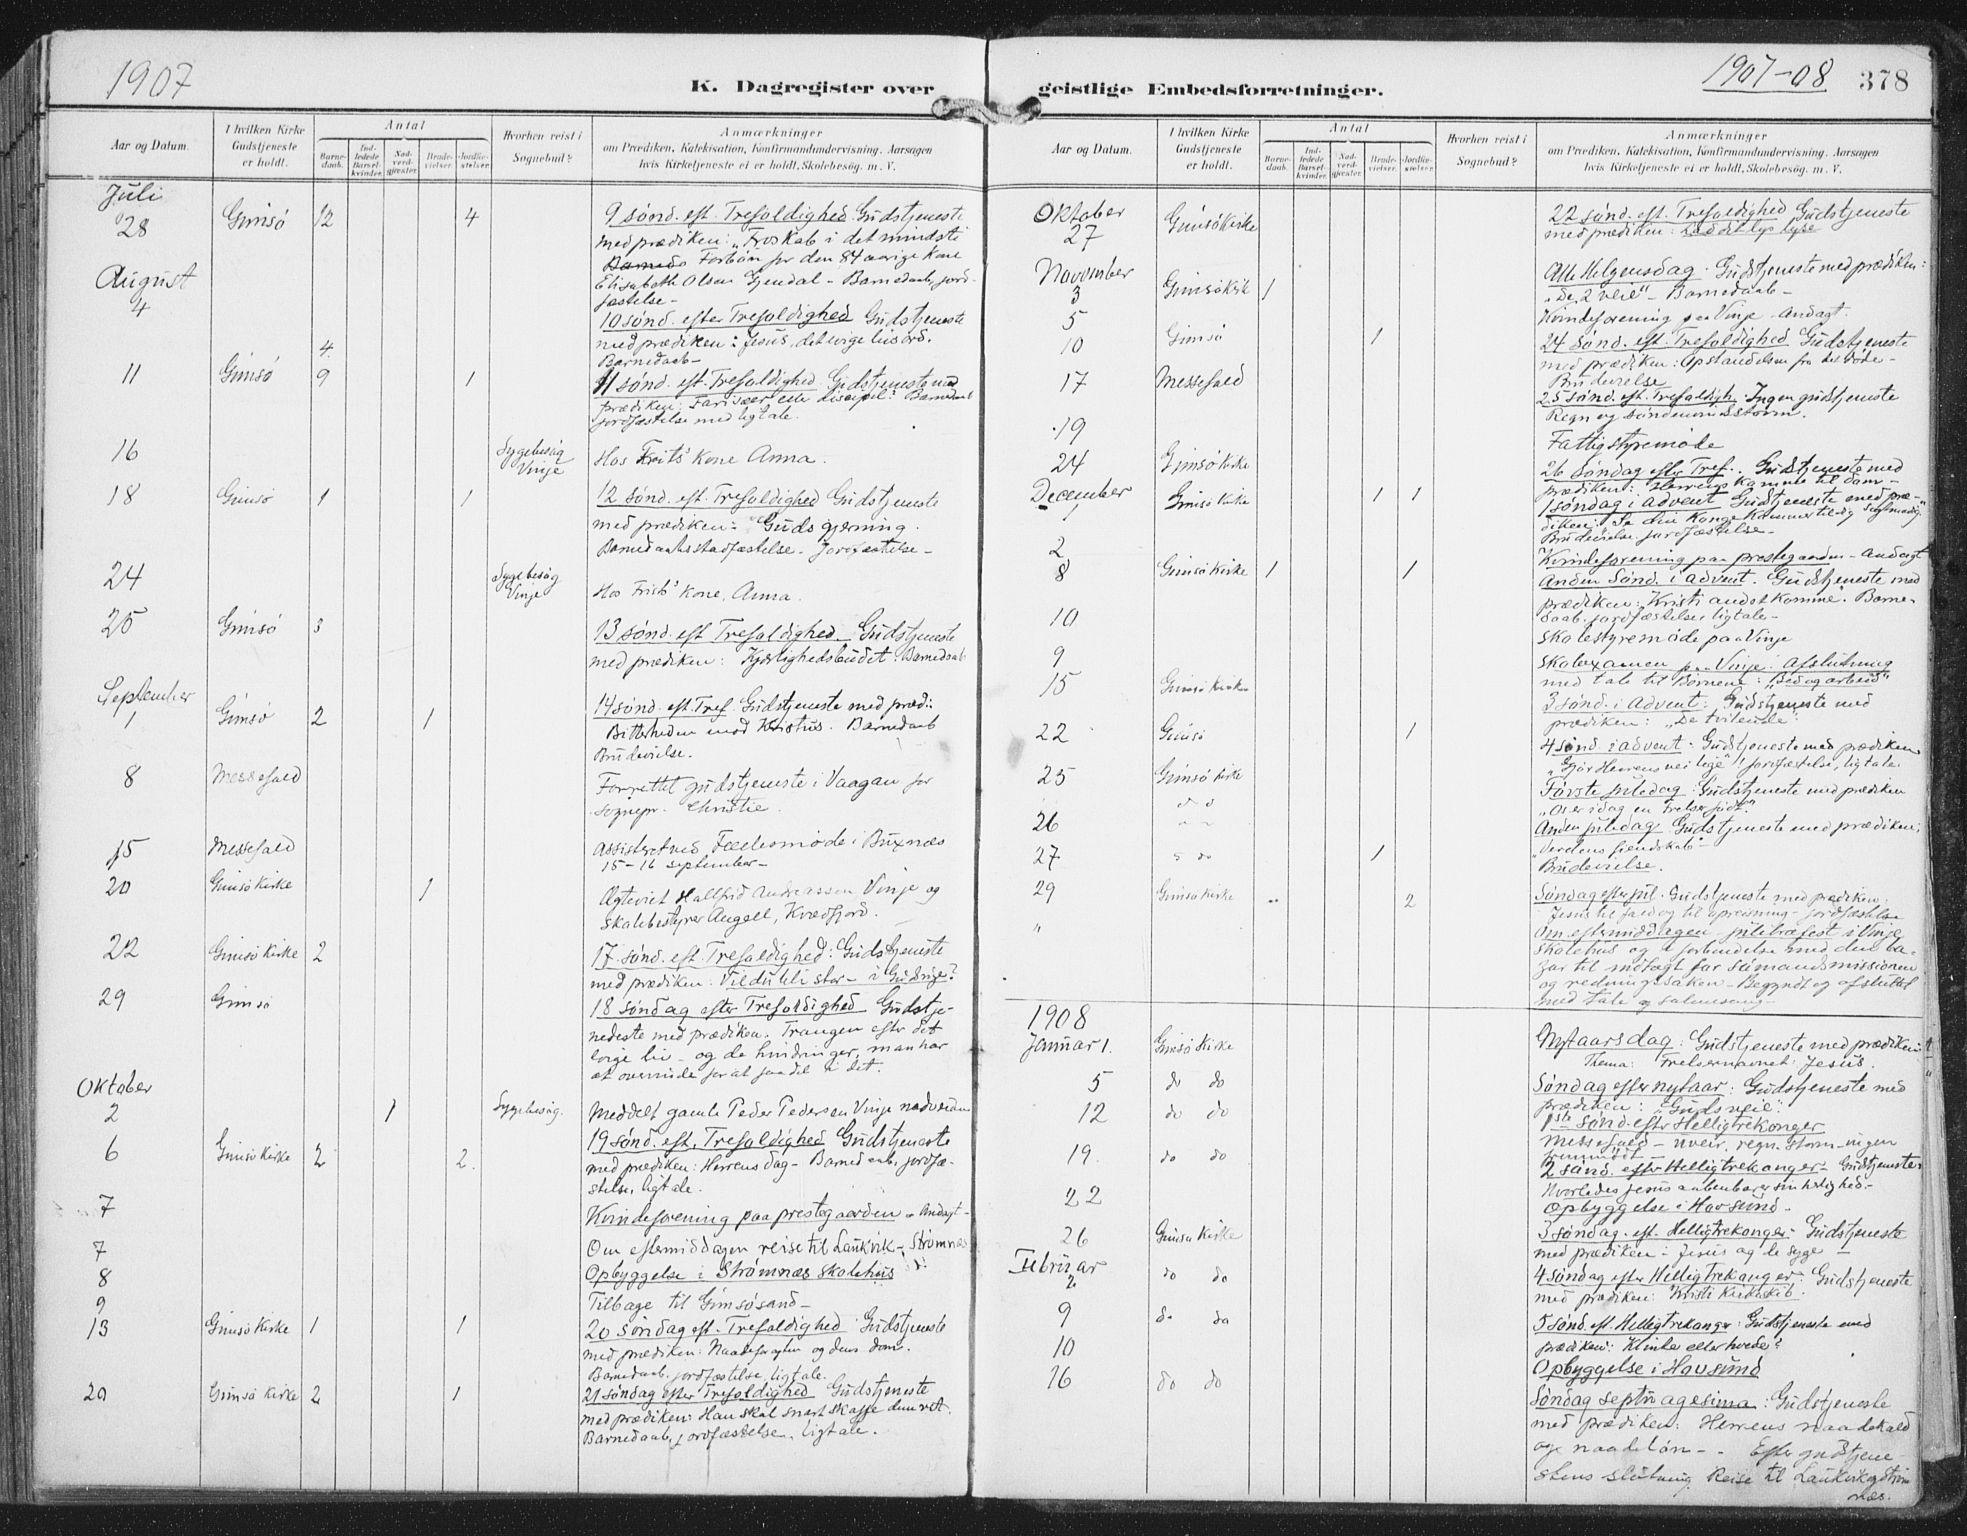 1907
K. Dagregister over
Aar og Datum.
I hvilken Kirke
Gudstjeneste
er holdt.
Antal
Barne-
daab.
Ind-
ledede
Barsel-
kvinder.
Nad-
verd-
gjæster.
Brude-
vielser.
Jordfæ-
stelser.
Hvorhen reist i
Sognebud?
Anmærkninger
om Prædiken, Katekisation, Konfirmandundervisning. Aarsagen
hvis Kirketjeneste ei er holdt, Skolebesøg. m. V.
Juli
28 Gimsø 12 4 9 sønd. eft. Trefoldighed Gudstjeneste
med prædiken: "Troskab i det mindste
Forbøn for den 84 aarige kone
Elisabeth Olsen Gjendal - Barnedaab, jord-
fæstelse -
August
4 4. 10 sønd. efter Trefoldighed Gudstjeneste
med prædiken: Jesus, det evige livs ord.
Barnedaab -
11 Gimsø 9 1 11 sønd. eft. Trefoldighed Gudstjeneste med
prædiken: Farisæer eller discipel? Barnedaab
jordfæstelse med ligtale.
16 Sygebesøg
Vinje Hos Frits' kone Anna.
18 Gimsø 1 1 12 sønd. eft. Trefoldighed Gudstjeneste
med prædiken: Guds gjerning.
Barnedaabsstadfæstelse. Jordfæstelse -
24 Sygebesøg
Vinje Hos Frits' kone, Anna.
25 Gimsø 3 13 sønd. eft Trefoldighed Gudstjeneste
med prædiken: Kjærlighedsbudet. Barnedaab
September
1 Gimsø 2 1 14 sønd. eft. Tref. Gudstjeneste med præd:
Bitterheden mod Kristus. Barnedaab
Brudevielse.
8 Messefald Forrettet gudstjeneste i Vaagan for
sognepr. Christie.
15 Messefald Assisteret ved Fællesmøde i Buxnæs
15-16 september -
20 Gimsø Kirke 1 Ægteviet Hallfrid Andreassen Vinje og
skolebestyrer Angell, Kvædfjord.
22 Gimsø Kirke 2 17. sønd. eft. Trefoldighed: Gudstjeneste
med prædiken: Vil du bli stor - i Gudsrige?
29 Gimsø 18 søndag efter Trefoldighed Gudstje-
nedeste med prædiken. Trangen efter det
evige liv - og de hindringer, man har
at overvinde for at faa del i det.
Oktober
2 1 Sygebesøg. Meddelt gamle Peder Pedersen Vinje nadveren
6 Gimsø Kirke 2 2. 19 sønd. eft. Trefoldighed Gudstjeneste
med prædiken: Herrens dag - Barnedaab, jordfæ-
stelse, ligtale.
7 Kvindeforening paa prestegaarden - Andagt -
7 Om eftermiddagen reise til Laukvik - Strømnæs
8 Opbyggelse i Strømnæs skolehus
9 Tilbage til Gimsøsand -
13 Gimsø Kirke 1 1 20 søndag eft. Trefoldighed Gudstjeneste
med prædiken: Naadeforagten og dens dom.
Barnedaab. jordfæstelse, ligtale.
20 Gimsø Kirke 2 1 21 søndag efter Trefoldighed Gudstjeneste
med prædiken: Han skal snart skaffe dem ret.
Barnedaab, jordfæstelse. ligtale.
1907-08 378
geistlige Embedsforretninger.
Aar og Datum.
I hvilken Kirke
Gudstjeneste
er holdt.
Antal
Barne-
daab.
Ind-
ledede
Barsel-
kvinder.
Nad-
verd-
gjæster.
Brude-
vielser.
Jordfæ-
stelser.
Hvorhen reist i
Sognebud?
Anmærkninger
om Prædiken, Katekisation, Konfirmandundervisning. Aarsagen
hvis Kirketjeneste ei er holdt, Skolebesøg. m. V.
Oktober
27 Gimsø Kirke 22 sønd. eft. Trefoldighed Gudstjeneste
med prædiken: Lad det lys lyse
November
3 Gimsø Kirk 1 Alle Helgensdag. Gudstjeneste med prædiken:
"De 2 veie" - Barnedaab -
5 Kvindeforening paa Vinje - Andagt.
10 Gimsø 1 24 sønd. eft. Trefoldighed Gudstjeneste
med prædiken: Opstandelsen fra det døde -
Brudevielse
17 Messefald 25 sønd. eft. Trefoldigh. Ingen gudstjeneste
Regn og søndenvindsstorm.
19 Fattigstyremøde
24 Gimsø Kirke 26 Søndag efter Tref.. Gudstjeneste med
prædiken: Herrens komme til dom -
December
1 Gimsø Kirke 1 1 1 søndag i advent Gudstjeneste med præ-
diken: "Se din Konge kommer til dig sagtmodig"
Brudevielse jordfæstelse -
2 Kvindeforening paa prestegaarden - Andagt
8 Gimsø Kirke 1 1 Anden Sønd. i advent. Gudstjeneste med
prædiken: "Kristi andet komme". Barne-
daab, jordfæstelse, ligtale -
10 Skolestyremøde paa Vinje
9 Skolexamen paa Vinje: Afslutning
med tale til Børnene: "Bed og arbeid"
15 Gimsø Kirke 3 sønd. i Advent: Gudstjeneste med
prædiken: "De tvilende".
22 Gimsø 1 4 sønd. i advent: Gudstjeneste med prædiken
"Gjør Herrens vei lige"! Jordfæstelse, ligtale.
25 Gimsø Kirke Første juledag: Gudstjeneste med prædiken
do "Os er idag en Frelser født"
26 " " Anden juledag Gudstjeneste med prædiken:
"Verdens fiendskab" -
27 do 1 Brudevielse.
29 Gimsø Kirke " 2 Søndag efter jul. Gudstjeneste med prædiken:
Jesus til fald og til opreisning - jordfæstelse
" Om eftermiddagen juletræfest i Vinje
skolehus og i forbindelse med den ba-
zar til indtægt for sømandsmissionen
og redningssaken - Begyndt og afsluttet
med tale og salmesang -
1908
Januar 1. Gimsø Kirke Nytaarsdag: Gudstjeneste med prædiken:
Thema: Frelsernavnet: Jesus.
5 do do Søndag efter nytaar: Gudstjeneste med
prædiken: "Guds veie".
12 do do 1ste sønd. efter Helligtrekonger
Messefald - uveir, regn. storm - ingen
fremmødt -
19. do do 2 sønd. efter Helligtrekonger - Gudstjeneste:
Hvorledes Jesus aabenbarer sin herlighed -
22 Opbyggelse i Hovsund -
26 Gimsø Kirke 3 søndag. eft. Helligtrekonger. Gudstjeneste
med prædiken: Jesus og de syge -
Februar
2 do do 4 søndag efter Helligtrekonger: Gudstjeneste
med prædiken: Kristi Kirkeskib.
9 do do 5 sønd. eft. Helligtrekonger: Gudstjeneste med
prædiken: Klinte eller hvede?
10 Opbyggelse i Hovsund
16 do do Søndag septuagesima: Gudstjeneste
med prædiken: Herrens naadekald
og naadeløn - - Efter gudstjene
stens slutning Reise til Laukvik og Strøm
næs.